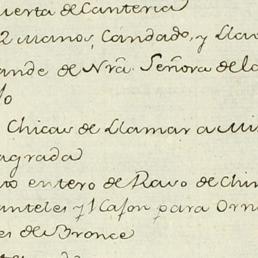 uerta de Canteria
2 manos, Candado, y Llav
ande de Nrã. Señora de lo
lo
Chicas de Llamar a Mi
agrada
entero de Raso de Chin
anteles y 1 Cajon para Orn
es de Bronce